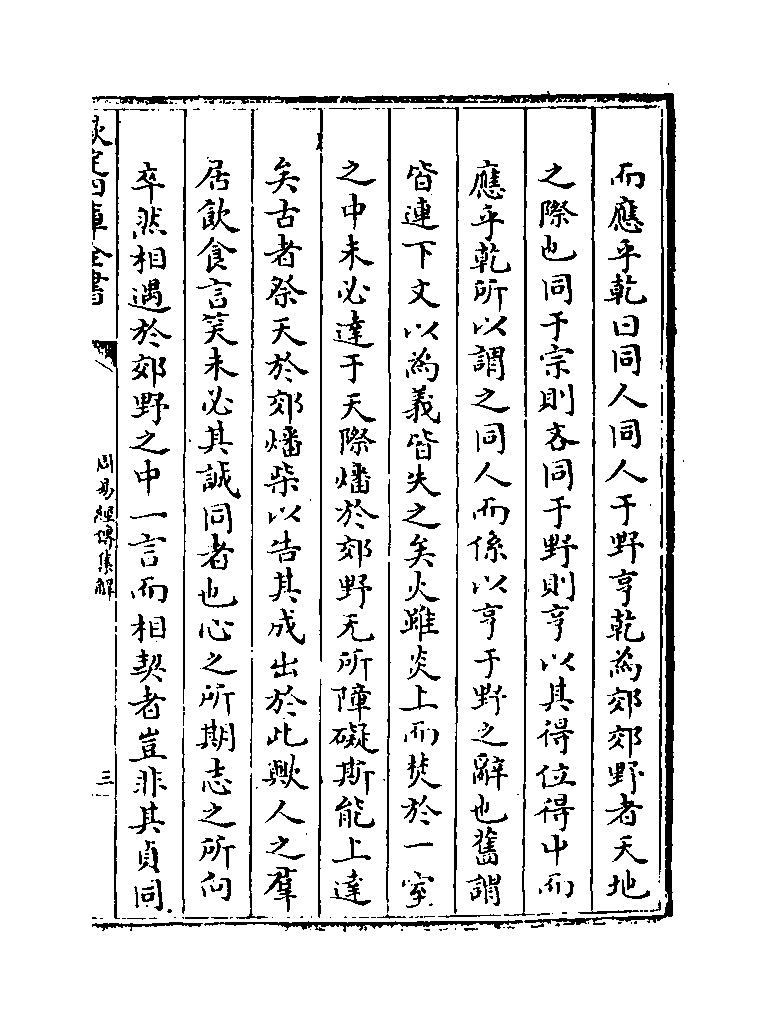 而應乎乾曰同人同人于野亨乾為郊郊野者天地
之際也同于宗則吝同于野則亨以其得位得中而
應乎乾所以謂之同人而係以亨于野之辭也舊謂
皆連下文以為義皆失之矣火雖炎上而焚於一室
之中未必達于天際燔於郊野无所障礙斯能上達
矣古者祭天於郊燔柴以告其成出於此歟人之羣
居飲食言笑未必其誠同者也心之所期志之所向
卒然相遇於郊野之中一言而相契者豈非其貞同
欽定四庫全書
周易經傳集解
三